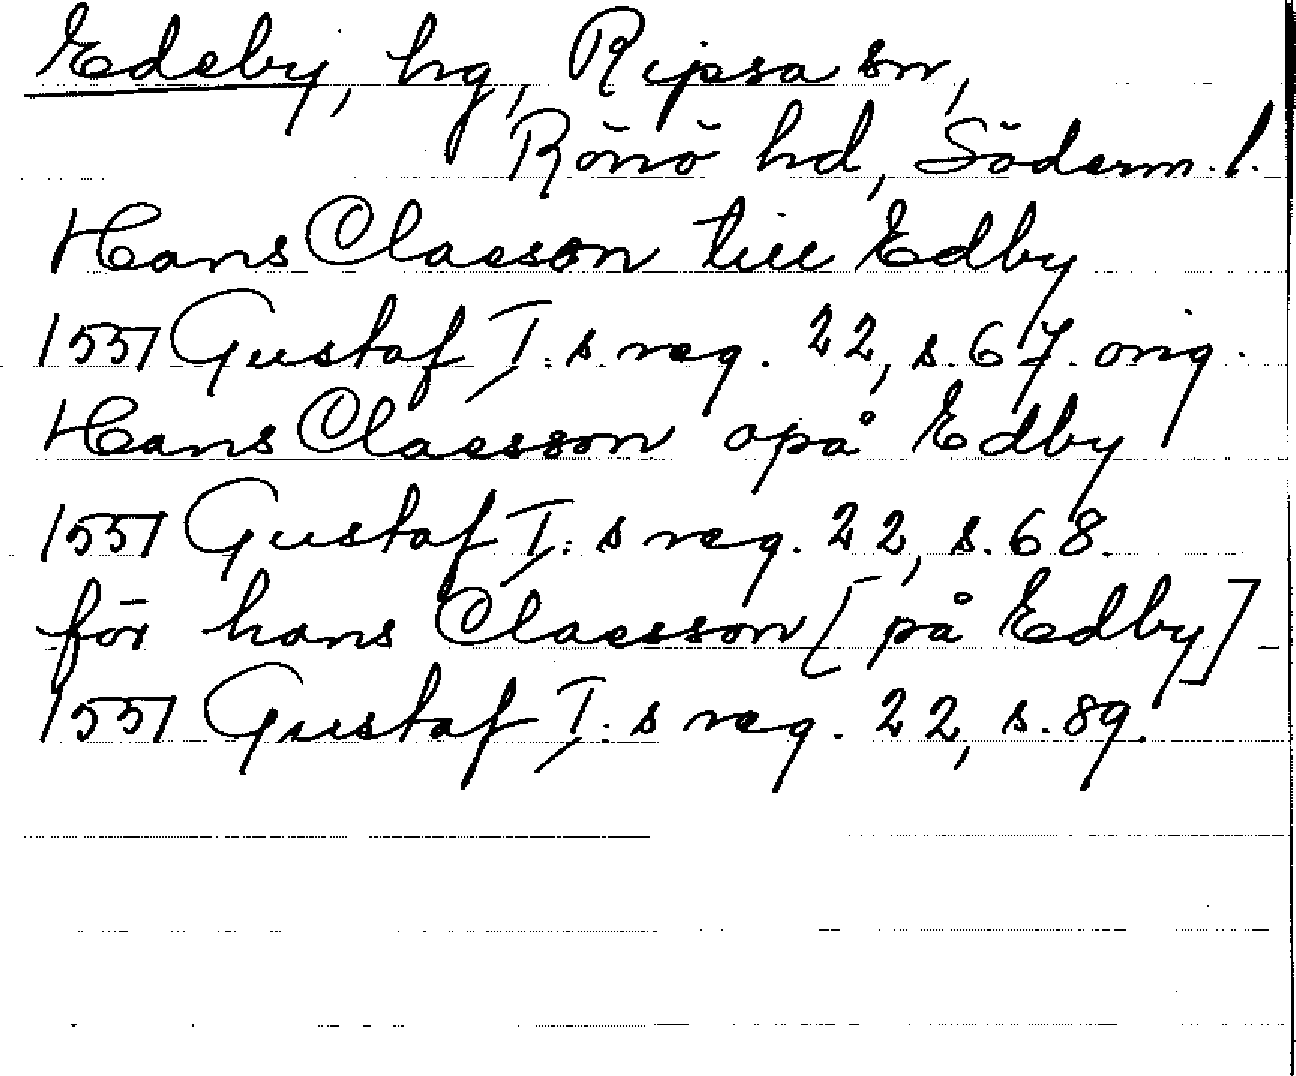 Edeby, hg, Ripsa sn,
Rönö hd, Söderm. l.
Hans Claeson till Edby
1551 Gustaf I: s reg. 22, s. 67. orig.
Hans Claesson opå Edby
1551 Gustaf I: s reg. 22, s. 68.
för hans Claesson [på Edby]
1551 Gustaf I: s reg. 22, s. 89.